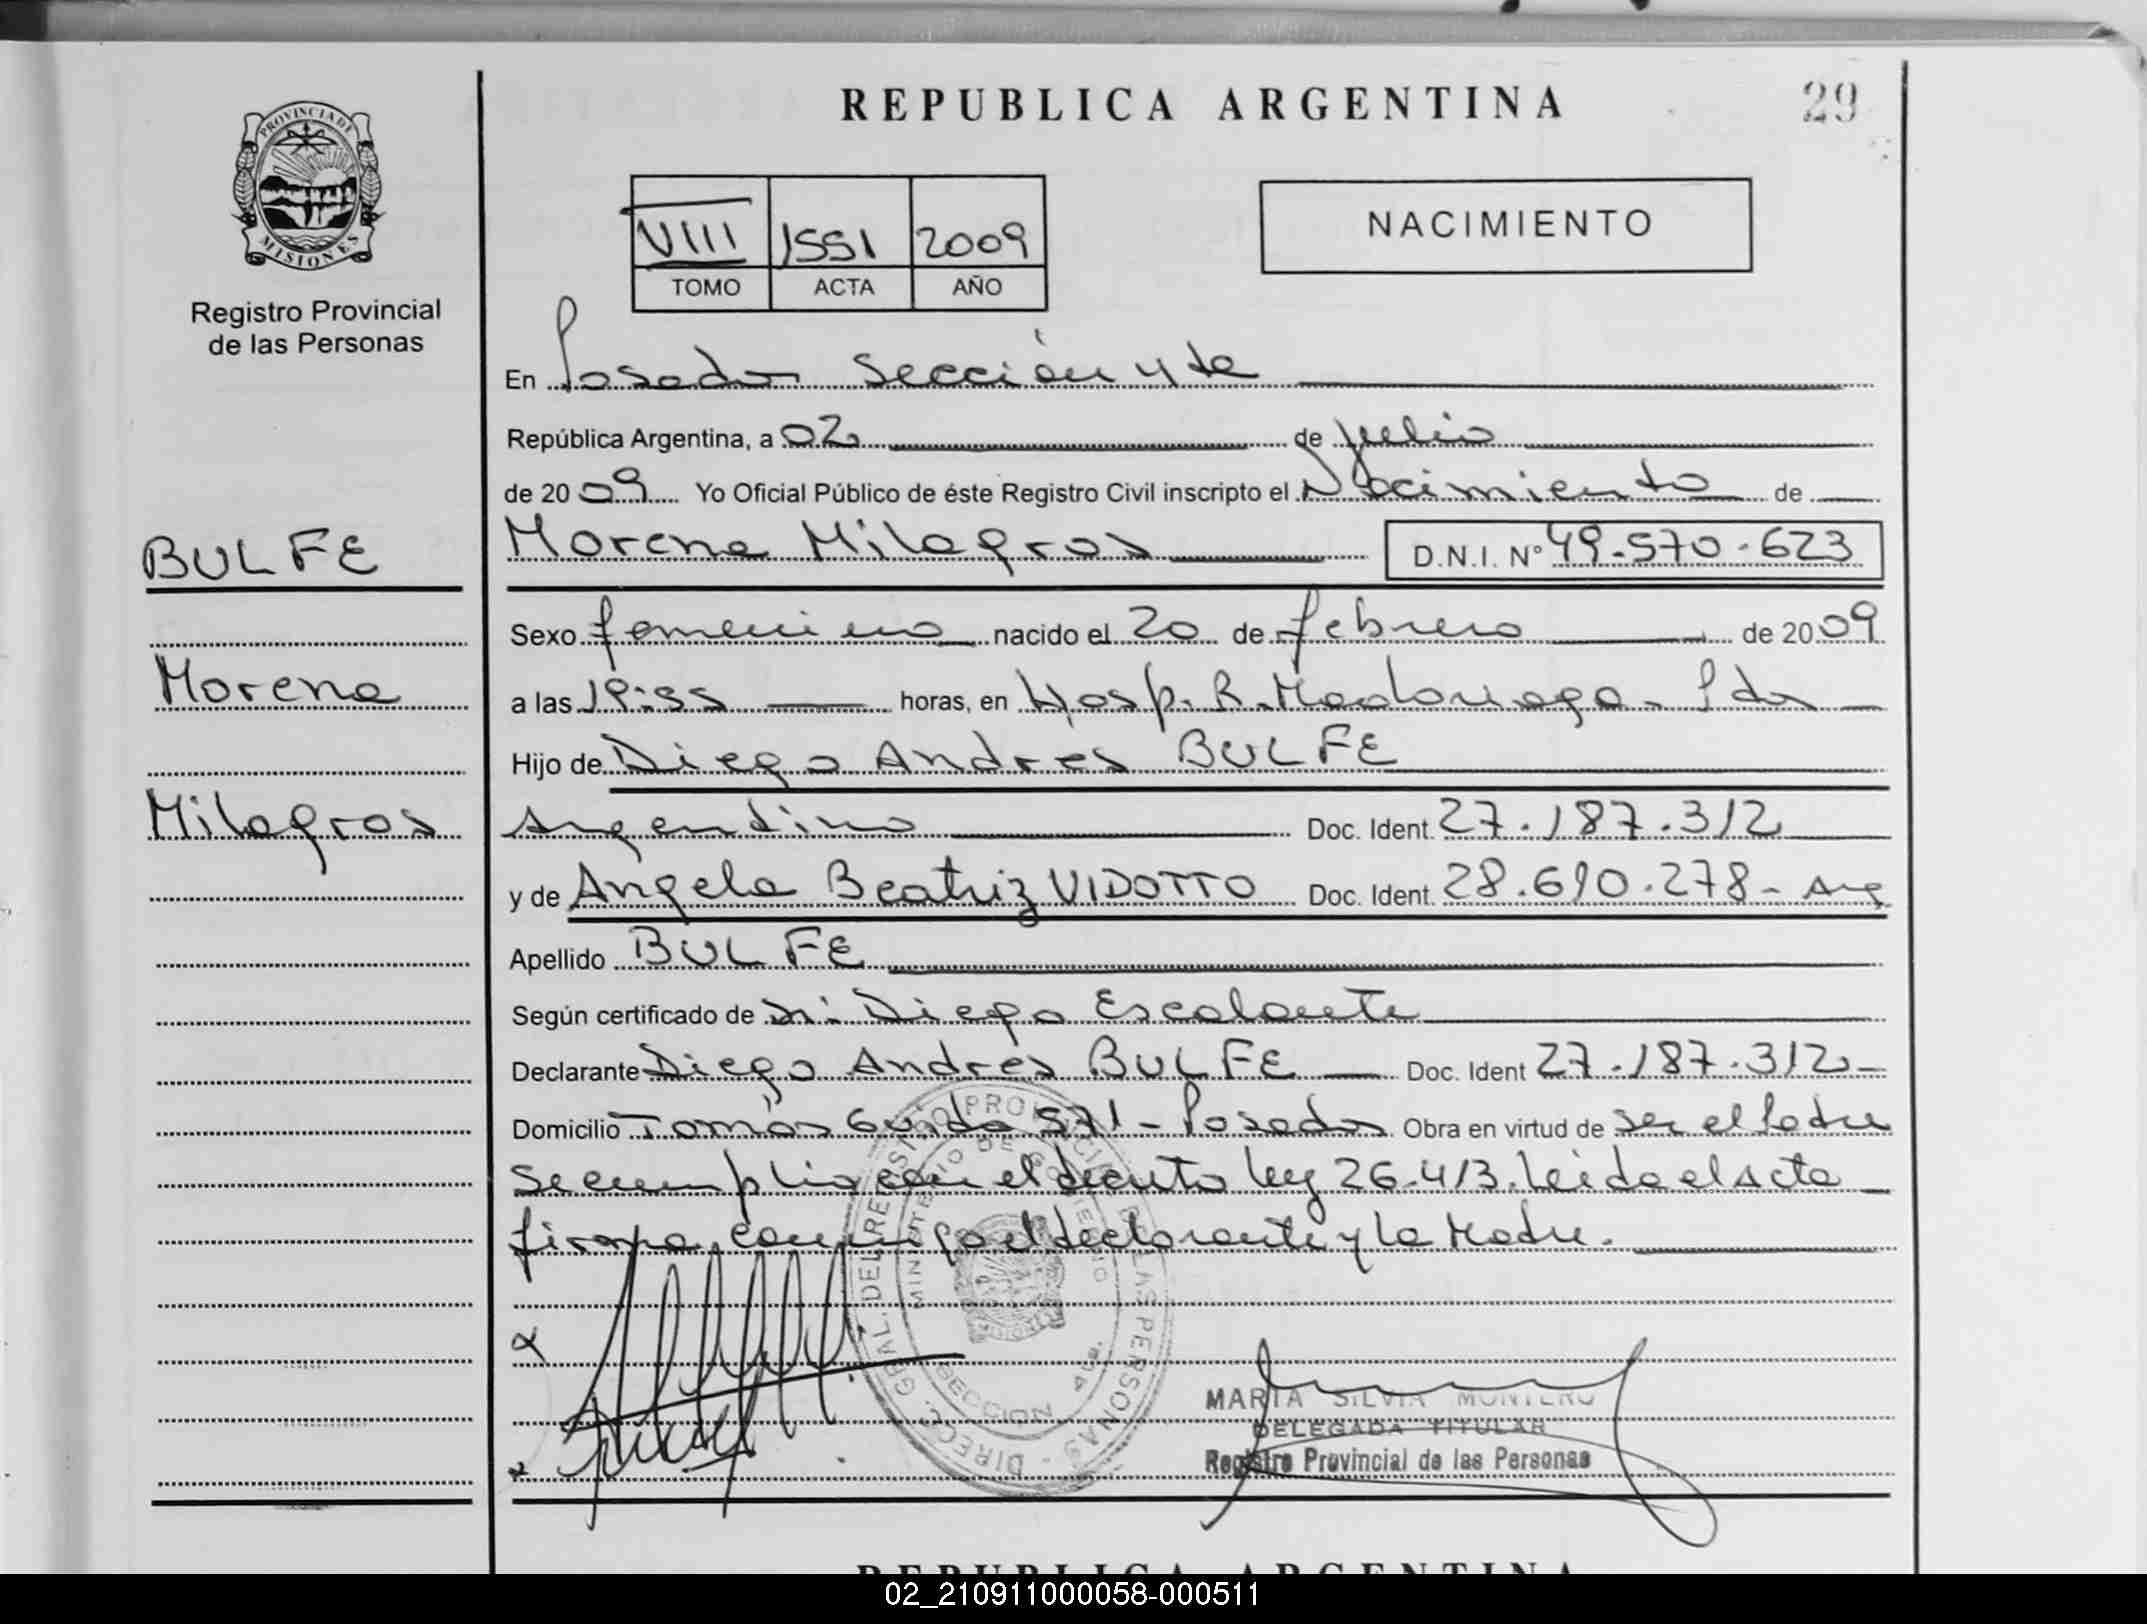 REPUBLICA ARGENTINA
29
PROVINCIA DE
MISIONES
Registro Provincial
de las Personas
VIII 1551 2009
TOMO ACTA AÑO
NACIMIENTO
En Posadas Sección 4 ta
República Argentina, a 02 de Julio
de 2009 Yo Oficial Público de éste Registro Civil inscripto el Nacimiento de
BULFE
Morena Milagros D.N.I. Nº 49.570.623
Sexo femenino nacido el 20 de febrero de 2009
Morena
a las 19:55 horas, en Hosp. R. Madariaga - Pdas
Hijo de Diego Andres BULFE
Milagros
Argentino Doc. Ident. 27.187.312
y de Angela Beatriz VIDOTTO Doc. Ident. 28.690.278 - Arg
Apellido BULFE
Según certificado de Dr: Diego Escalante
Declarante Diego Andrés BULFE Doc. Ident 27.187.312-
Domicilio Tomás Guido 571 - Posadas Obra en virtud de ser el Padre
se cumplio con el decreto ley 26.413. Leida el acta
firma conmigo el declarante y la Madre.
DIREC. GRAL. DEL REGISTRO PROVINCIAL DE LAS PERSONAS
MINISTERIO DE GOBIERNO
SECCION 4ta.
MARIA SILVIA MONTERO
DELEGADA TITULAR
Registro Provincial de las Personas
REPUBLICA ARGENTINA
02_210911000058-000511